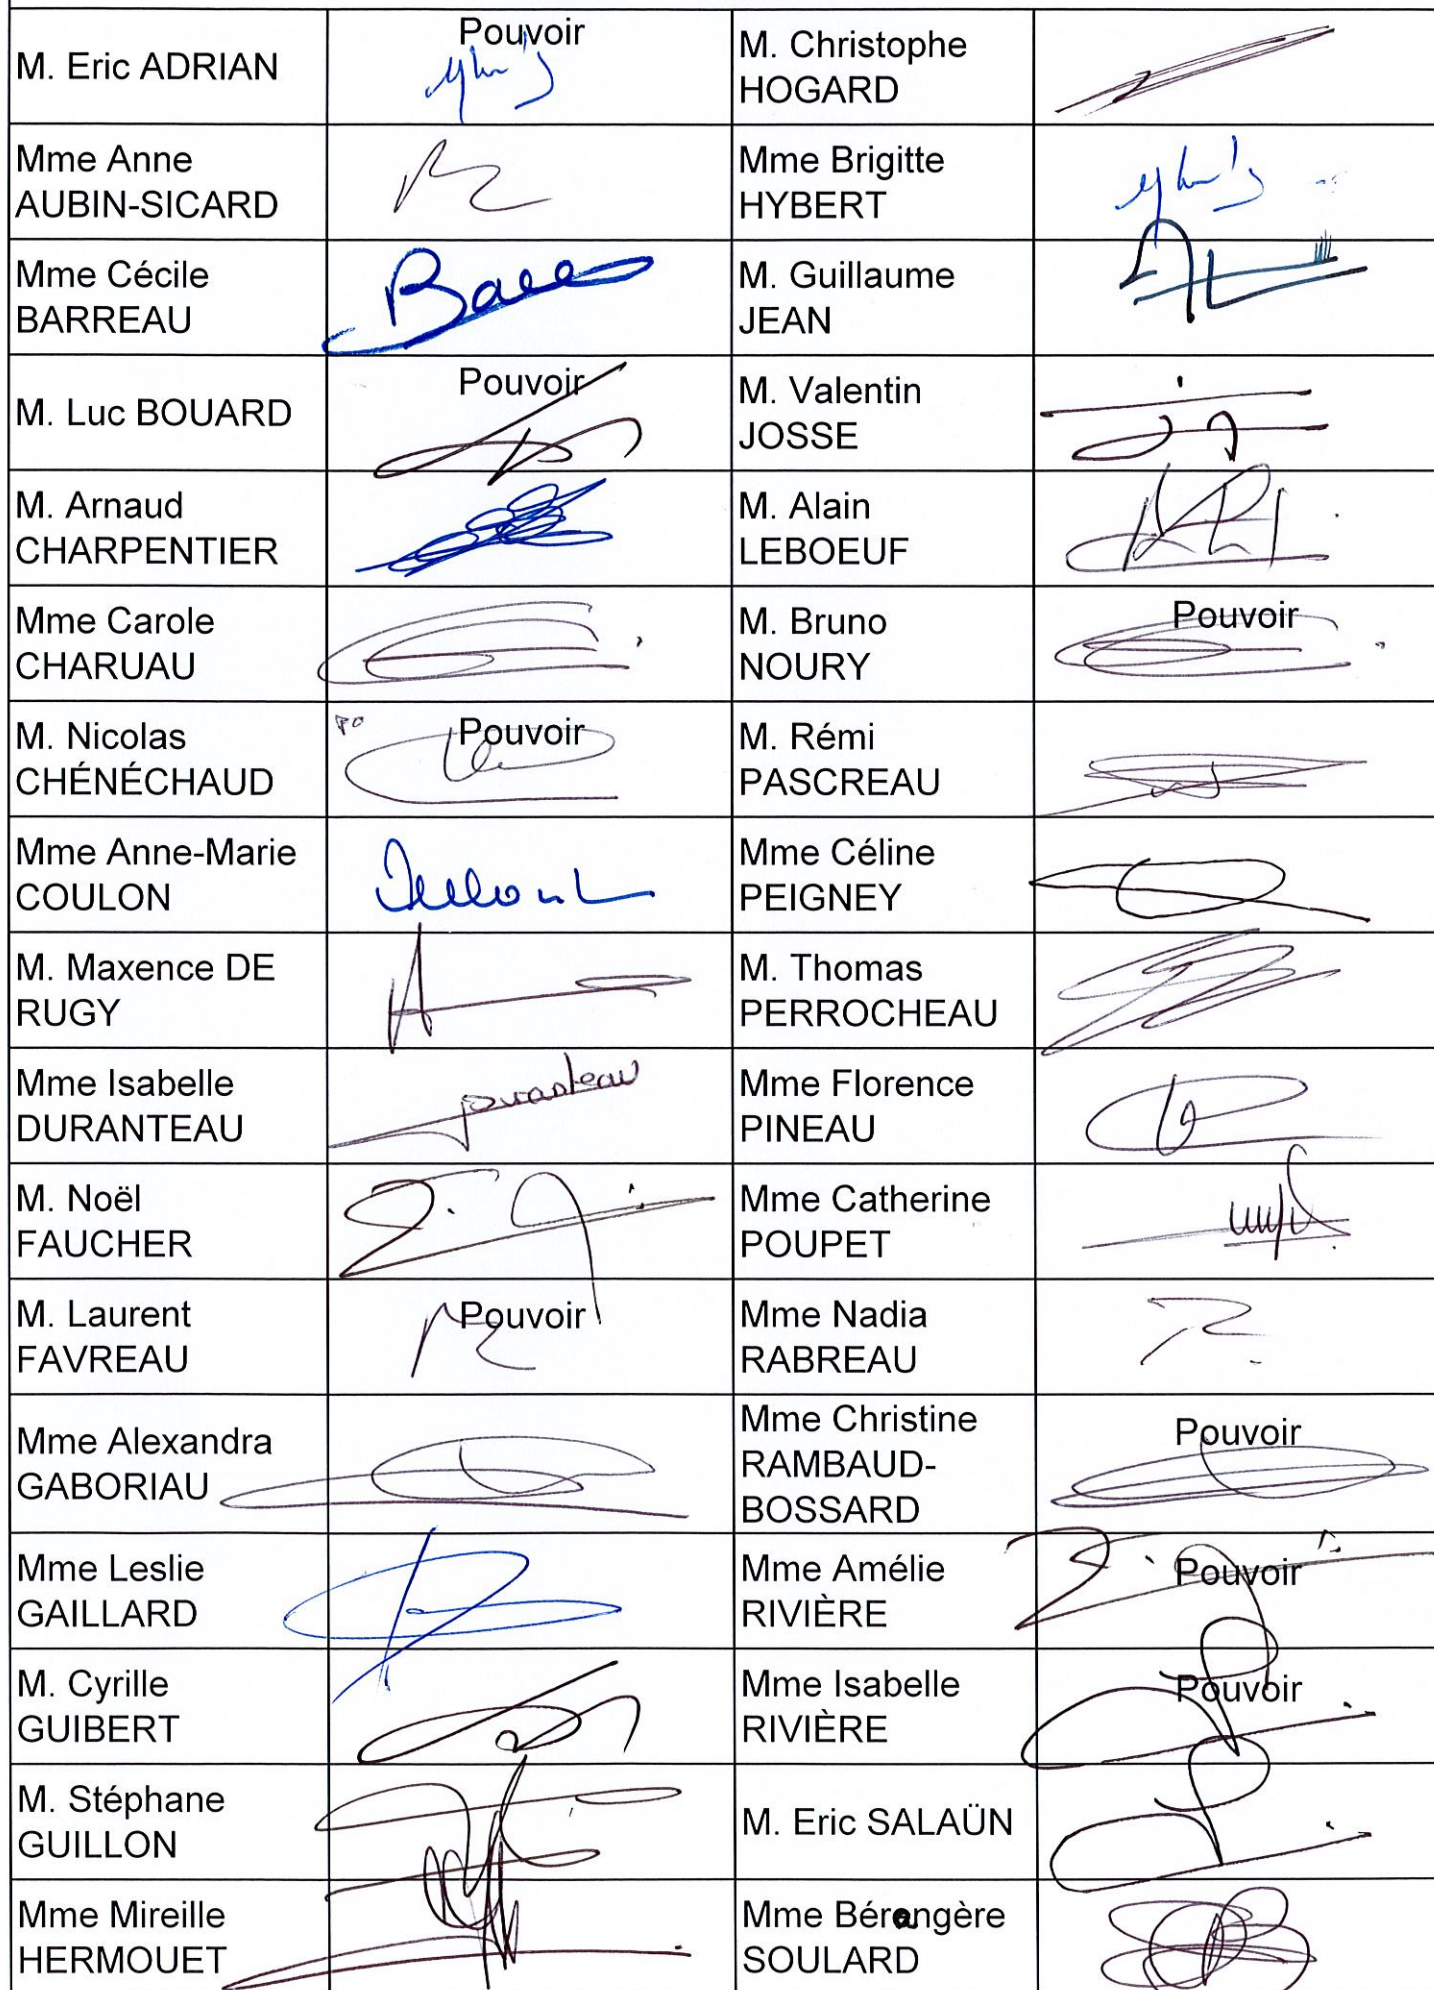 M. Eric ADRIAN
Pouvoir
M. Christophe
HOGARD
Mme Anne
AUBIN-SICARD
Mme Brigitte
HYBERT
Mme Cécile
BARREAU
M. Guillaume
JEAN
M. Luc BOUARD
Pouvoir
M. Valentin
JOSSE
M. Arnaud
CHARPENTIER
M. Alain
LEBOEUF
Mme Carole
CHARUAU
M. Bruno
NOURY
Pouvoir
M. Nicolas
CHÉNÉCHAUD
PO
Pouvoir
M. Rémi
PASCREAU
Mme Anne-Marie
COULON
Mme Céline
PEIGNEY
M. Maxence DE
RUGY
M. Thomas
PERROCHEAU
Mme Isabelle
DURANTEAU
Duranteau
Mme Florence
PINEAU
M. Noël
FAUCHER
Mme Catherine
POUPET
M. Laurent
FAVREAU
Pouvoir
Mme Nadia
RABREAU
Mme Alexandra
GABORIAU
Mme Christine
RAMBAUD-
BOSSARD
Pouvoir
Mme Leslie
GAILLARD
Mme Amélie
RIVIÈRE
Pouvoir
M. Cyrille
GUIBERT
Mme Isabelle
RIVIÈRE
Pouvoir
M. Stéphane
GUILLON
M. Eric SALAÜN
Mme Mireille
HERMOUET
Mme Bérangère
SOULARD